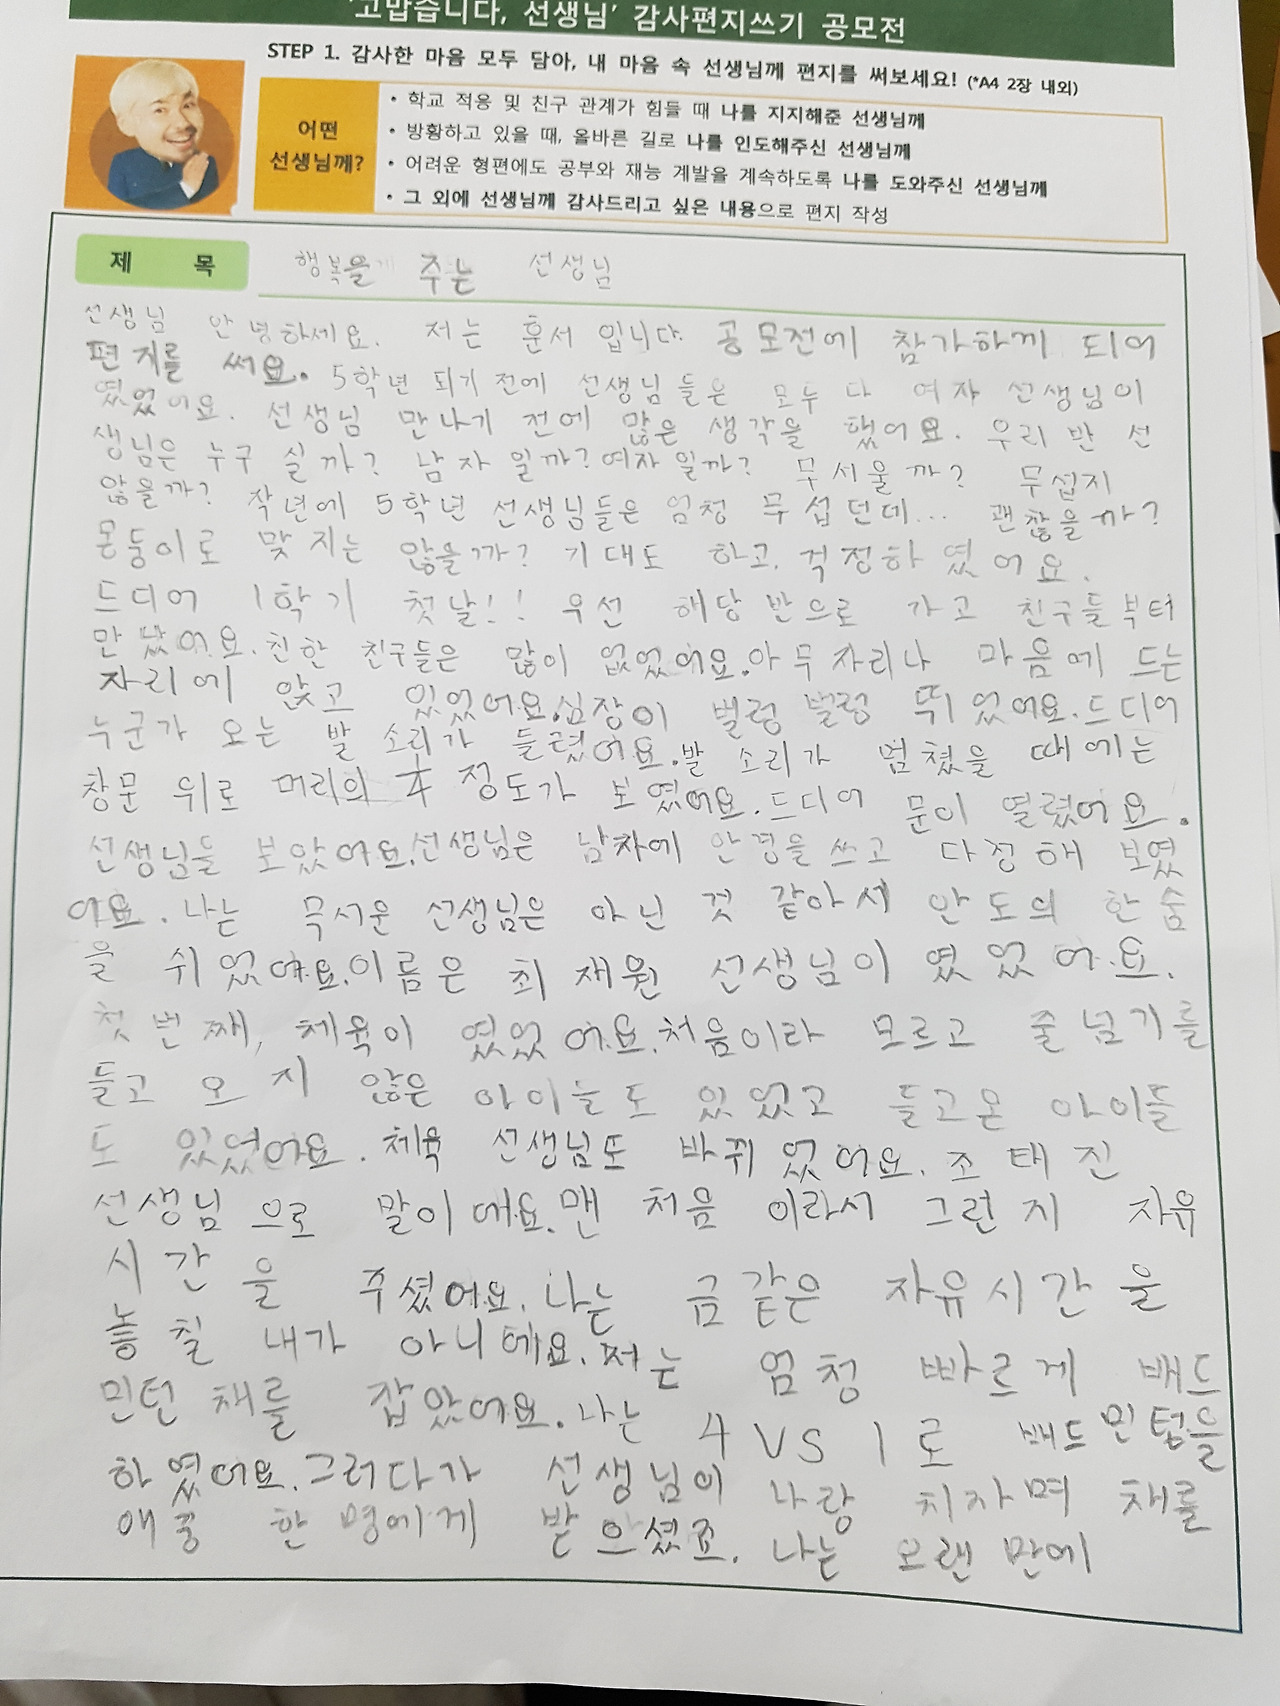 '고맙습니다, 선생님' 감사편지쓰기 공모전
STEP 1. 감사한 마음 모두 담아, 내 마음 속 선생님께 편지를 써보세요! (*A4 2장 내외)
어떤
선생님께?
• 학교 적응 및 친구 관계가 힘들 때 나를 지지해준 선생님께
• 방황하고 있을 때, 올바른 길로 나를 인도해주신 선생님께
• 어려운 형편에도 공부와 재능 계발을 계속하도록 나를 도와주신 선생님께
• 그 외에 선생님께 감사드리고 싶은 내용으로 편지 작성
제 목
행복을 주는 선생님
선생님 안녕하세요. 저는 훈서 입니다. 공모전에 참가하께 되어
편지를 써요. 5학년 되기 전에 선생님들은 모두 다 여자 선생님이
였었어요. 선생님 만나기 전에 많은 생각을 했어요. 우리 반 선
생님은 누구 실까? 남자 일까? 여자 일까? 무서울까? 무섭지
않을까? 작년에 5학년 선생님들은 엄청 무섭던데... 괜찮을까?
몬둥이로 맞지는 않을까? 기대도 하고, 걱정하였어요.
드디어 1학기 첫날!! 우선 해당 반으로 가고 친구들부터
만났어요. 친한 친구들은 많이 없었어요. 아무 자리나 마음에 드는
자리에 앉고 있었어요. 심장이 벌렁벌렁 뛰었어요. 드디어
누군가 오는 발 소리가 들렸어요. 발 소리가 멈췄을 때에는
창문 위로 머리의 정도가 보였어요. 드디어 문이 열렸어요.
선생님들 보았어요. 선생님은 남자에 안경을 쓰고 다정해 보였
어요. 나는 무서운 선생님은 아닌 것 같아서 안도의 한숨
을 쉬었어요. 이름은 최재원 선생님이 였었어요.
첫번째, 체육이 였었어요. 처음이라 모르고 줄넘기를
들고 오지 않은 아이들도 있었고 들고온 아이들
도 있었어요. 체육 선생님도 바뀌었어요. 조태진
선생님으로 말이에요. 맨 처음 이라서 그런지 자유
시간을 주셨어요. 나는 금같은 자유시간을
놓칠 내가 아니에요. 저는 엄청 빠르게 배드
민턴 채를 잡았어요. 나는 4 VS 1로 배드민턴을
하였어요. 그러다가 선생님이 나랑 치자며 채를
애중 한명에게 받으셨죠. 나는 오랜만에